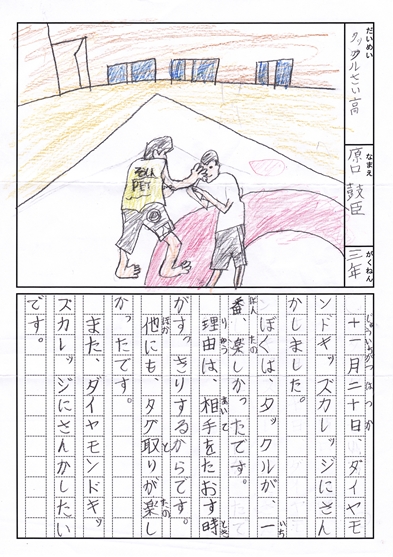 だいめい
タックルさい高
なまえ
原口 鼓臣
がくねん
三年
じゅういちがつはつか
十一月二十日、ダイヤモ
ンドキッズカレッジにさん
かしました。
いち
ぼくは、タックルが、一
ばん たの
番、楽しかったです。
りゆう あいて とき
理由は、相手をたおす時
がすっきりするからです。
ほか と たの
他にも、タグ取りが楽し
かったです。
また、ダイヤモンドキッ
ズカレッジにさんかしたい
です。